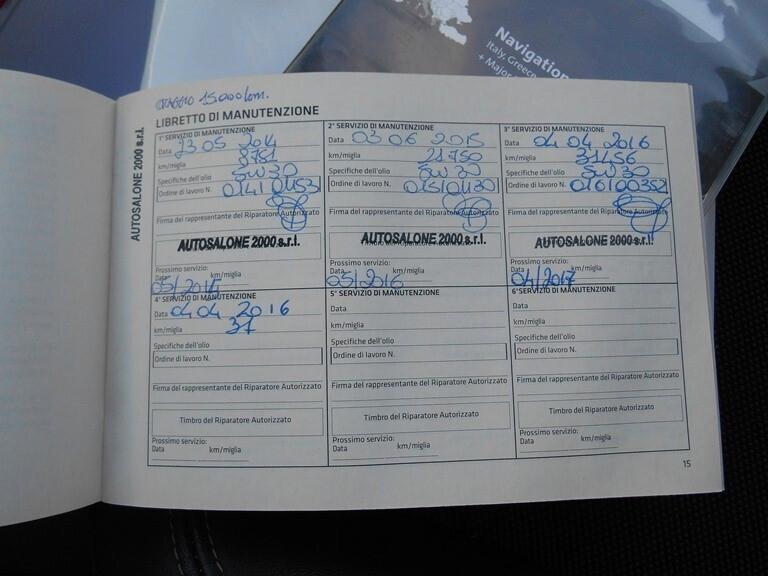 Navigation
Italy, Greece
+ Major
15000 km.
LIBRETTO DI MANUTENZIONE
AUTOSALONE 2000 s.r.l.
1° SERVIZIO DI MANUTENZIONE
Data 23 05 2014
km/miglia
Specifiche dell'olio 5W30
Ordine di lavoro N.
Firma del rappresentante del Riparatore Autorizzato
AUTOSALONE 2000 s.r.l.
Prossimo servizio:
Data km/miglia
05/2015
2° SERVIZIO DI MANUTENZIONE
Data 03 06 2015
km/miglia 21750
Specifiche dell'olio 5W30
Ordine di lavoro N. 015/01130
Firma del rappresentante del Riparatore Autorizzato
AUTOSALONE 2000 s.r.l.
Prossimo servizio:
Data km/miglia
05/2016
3° SERVIZIO DI MANUTENZIONE
Data 04 04 2016
km/miglia 31456
Specifiche dell'olio 5W30
Ordine di lavoro N. 016/00352
Firma del rappresentante del Riparatore Autorizzato
AUTOSALONE 2000 s.r.l.
Prossimo servizio:
Data km/miglia
04/2017
4° SERVIZIO DI MANUTENZIONE
Data 04 04 2016
km/miglia 31
Specifiche dell'olio
Ordine di lavoro N.
Firma del rappresentante del Riparatore Autorizzato
Timbro del Riparatore Autorizzato
Prossimo servizio:
Data km/miglia
5° SERVIZIO DI MANUTENZIONE
Data
km/miglia
Specifiche dell'olio
Ordine di lavoro N.
Firma del rappresentante del Riparatore Autorizzato
Timbro del Riparatore Autorizzato
Prossimo servizio:
Data km/miglia
6° SERVIZIO DI MANUTENZIONE
Data
km/miglia
Specifiche dell'olio
Ordine di lavoro N.
Firma del rappresentante del Riparatore Autorizzato
Timbro del Riparatore Autorizzato
Prossimo servizio:
Data km/miglia
15